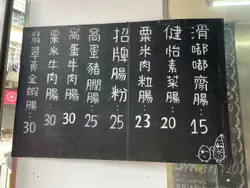 滑嘟嘟齋腸：15
健怡素菜腸：20
粟米肉粒腸 23
招牌腸粉：25
窩蛋豬膶腸 25
窩蛋牛肉腸 30
粟米牛肉腸：30
翡翠黃金蝦腸：30